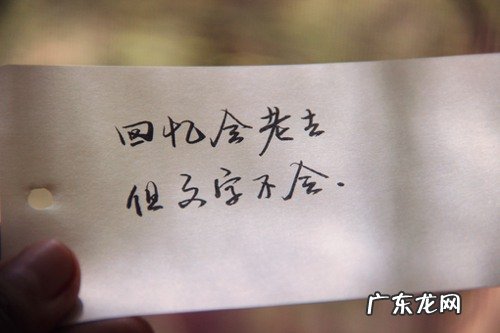 回忆会老去
但文字不会.
广东龙网